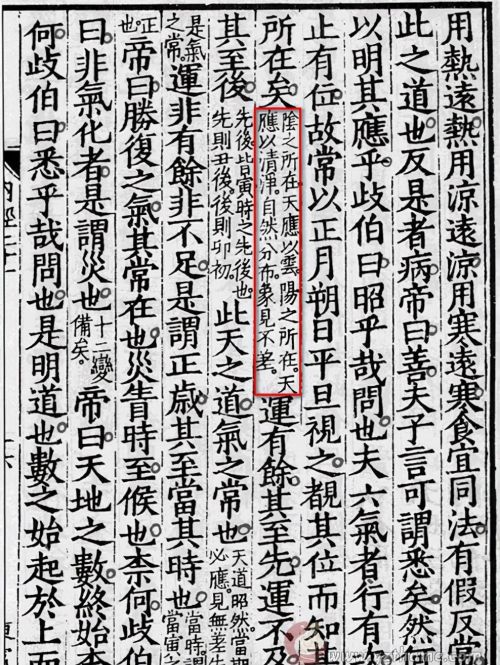 用熱遠熱用涼遠涼用寒遠寒食宜同法有假反
此之道也反是者病帝曰善夫子言可謂悉矣然
以明其應乎歧伯曰昭乎哉問也夫六氣者行有
止有位故常以正月朔日平旦視之覩其位而知
所在矣陰之所在。天應以雲。陽之所在。天應以清淨。自然分布。象見不差。運有餘其至先運不及
其至後先後皆寅時之先後也。先則丑後。後則卯初。此天之道氣之常也天道昭然。當期必應。見無差
是氣之常。運非有餘非不足是謂正歲其至當其時也當時謂當寅之
正也。帝曰勝復之氣其常在也災眚時至候也柰何歧伯
曰非氣化者是謂災也十二變備矣。帝曰天地之數終始柰
何歧伯曰悉乎哉問也是明道也數之始起於上而